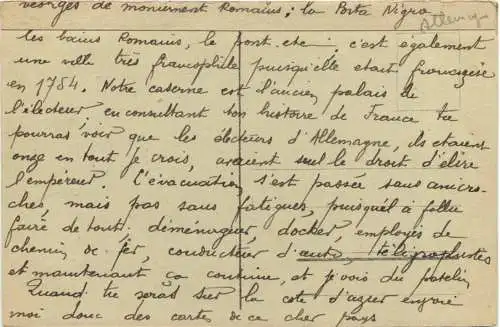 vestiges de monument Romains ; la Porta Nigra
Allemagne
les bains Romains, le pont.. etc ; c'est également
une ville très francophile puisqu'elle était française
en 1754. Notre caserne est l'ancien palais de
l'électeur, en consultant ton histoire de France tu
pourras voir que les électeurs d'Allemagne, ils étaient
onze en tout je crois, avaient seul le droit d'élire
l'empereur. L'évacuation s'est passée sans anicro-
ches mais pas sans fatigues, puisqu'il a fallu
faire de tout. déménageur, docker, employés de
chemin de fer, conducteur d'auto, télégraphistes
et maintenant ça continue, et je vois du patelin
Quand tu seras sur la cote d'azur envoie
moi donc des cartes de ce cher pays